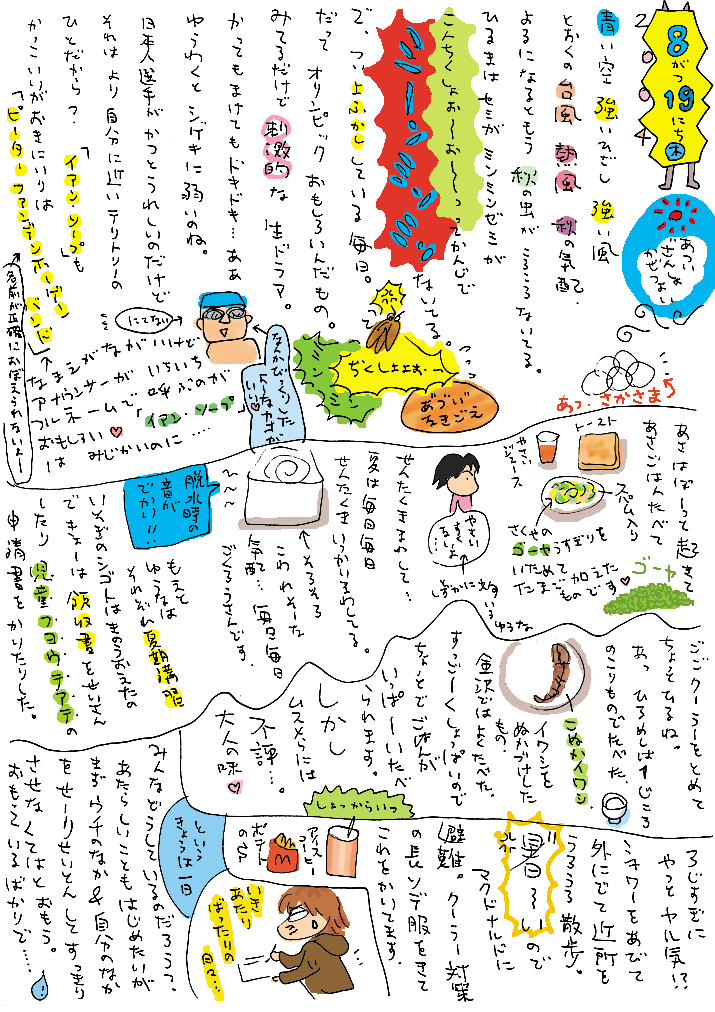 2004
8がつ19にち 木
あついよ
ざんしょ
かぜつよい
青い空 強いひざし 強い風
とおくの台風 熱風 秋の気配。
よるになるともう 秋の虫が ころころ ないてる。
ひるまはセミが ミンミンゼミが
こんちくしょお〜お〜〜〜ってかんじで
ないてる。
で、つい よふかし している 毎日。
だって オリンピック おもしろいんだもの。
みてるだけで 刺激的な 生ドラマ。
かってもまけてもドキドキ…ああ
ゆうわくと シゲキに 弱いのね。
日本人選手が かつとうれしいのだけど
それは より 自分に近いテリトリーの
ひとだから?「イアン・ソープ」も
かっこいいが おきにいりは
「ピーター・ファンデンホーヘンバンド」
↑名前が正確におぼえられないよー
まぁ ながながいけど
アナウンサーが いちいち
フルネームで 呼ぶのが
おもしろい♡「イアン・ソープ」
は みじかいのに……
にてない
なんかひょうろっとした
ミン ミン
ぢくしょおぉ…
あづい なきごえ
あっ、さかさま
あさはばーっと起きて
あさごはんたべて
トースト
やさい
ジュース
スパム入り
さくやの
ゴーヤうすぎりを
いためて
たまご加えた
ものです♡
ゴーヤ
せんたくきまわして…
夏は毎日毎日
せんたくき いっかいまわしてる。
そろそろ
こわれそーな
気配… 毎日毎日
ごくろうさんです。
脱水時の
音が
でかい!!
もえと
ゆうなは
それぞれ夏期講習
いそぎのシゴトはきのうおえたの
できょーは 領収書をせいさん
したり 児童フヨウテアテの
申請書をかりたりした。
ごごクーラーをとめて
ちょっとひるね。
あっ ひるめしは1じごろ
のこりものでたべた。
こぬかイワシ
イワシを
ぬかづけした
もの
金沢ではよくたべた。
すっごーくしょっぱいので
ちょっとでごはんが
いっぱーいたべ
られます。
しかし
ムスメらには
不評…。
大人の味♡
しょっからいっ
ろじすぎに
やっとヤル気!?
シャワーをあびて
外にでて近所を
うろうろ散歩。
暑〜いので
マクドナルドに
避難。クーラー対策
の長ソデ服をきて
これをかいてます。
アイスコーヒー
ポテトのS
いきあたり
ばったりの
日々…
という
きょうは一日
みんなどうしているのだろうっ。
あたらしいこともはじめたいが
まず ウチのなか&自分のなか
をせーりせいとんしてすっきり
させなくてはとおもう。
おもっているばかりで……